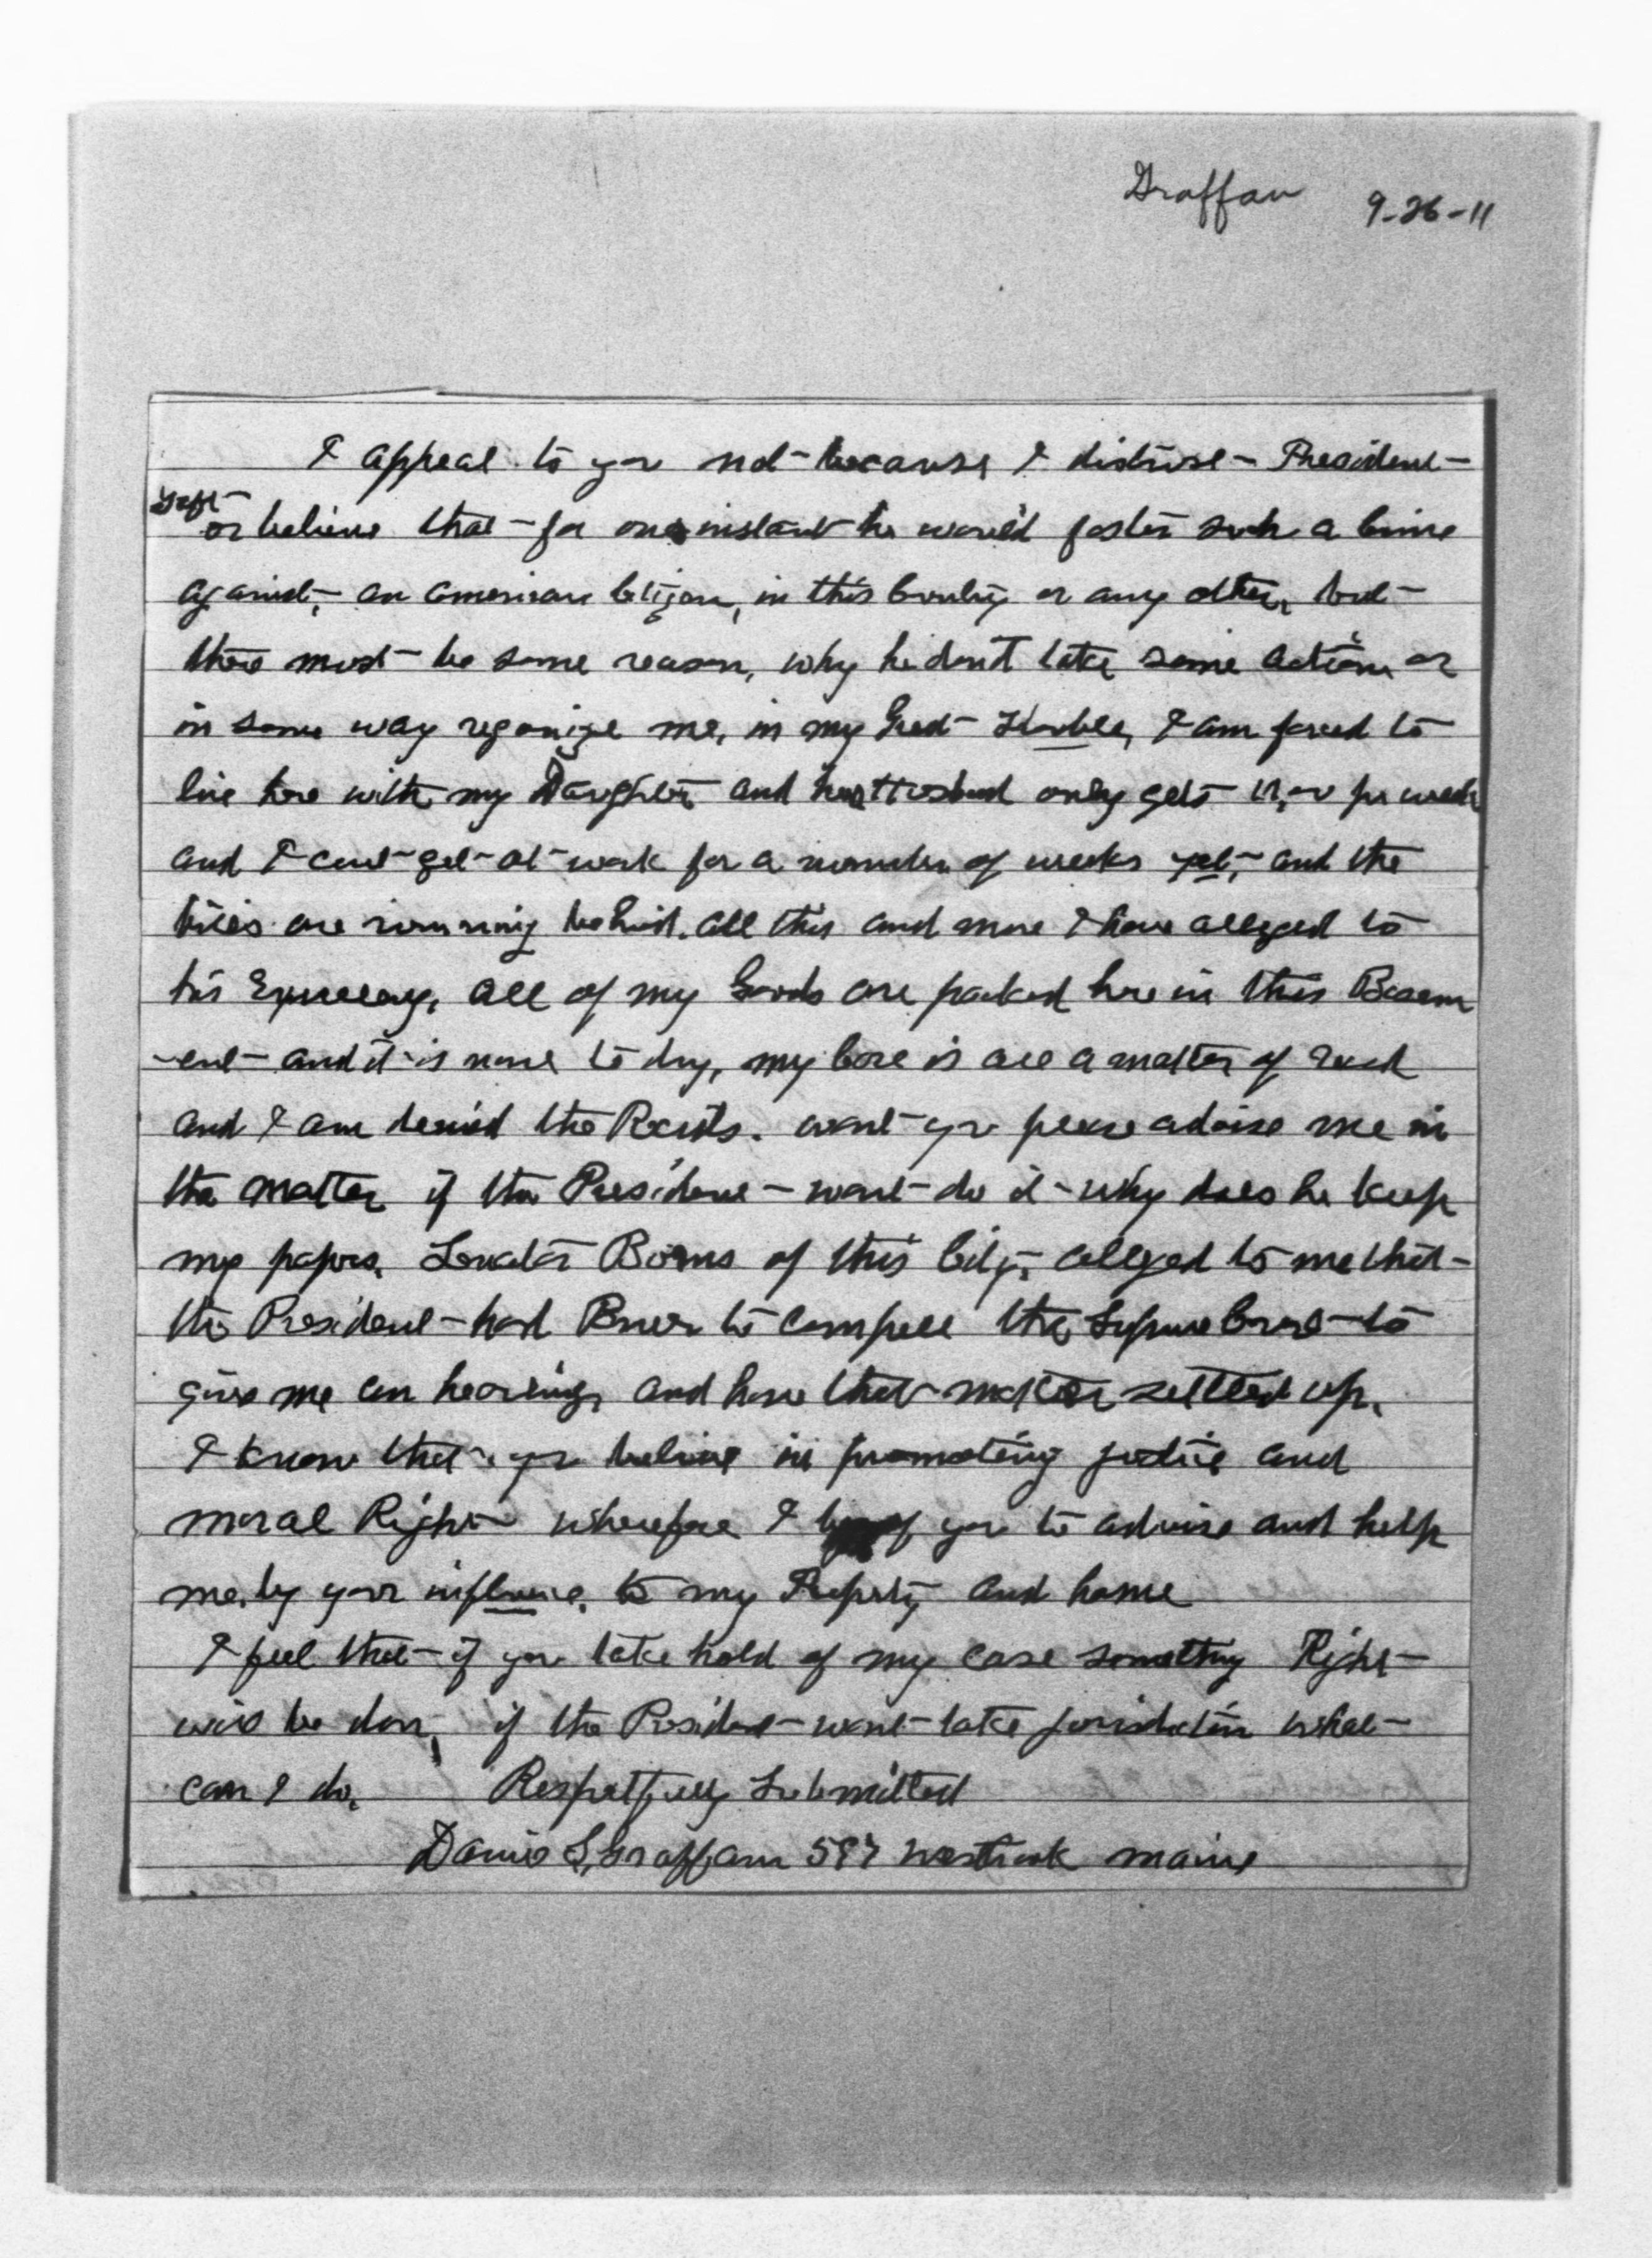 Graffam 9-26-11
I appeal to you not because I distrust President
Taft
or believe that for one instant he would foster such a Crime
against, an american Citizen, in this Country or any other, but
there must be some reason, why he dont take some action or
in some way reganize me, in my Great Trouble, I am forced to
live here with my Daughter and her Husband only gets per week
and I cant get at work for a number of weeks yet, and the
bills are running behind. all this and more I have alleged to
his Exrcelency, all of my Goods are packed here in this Basem
-ent and it is none to dry, my Case is all a matter of
and I am denied the . want you please advise me in
the matter if the President want do it why does he keep
my papers. of this City, alleged to me that
the President had Power to Compell the Supreme Court to
give me an hearing, and have that matter settled up.
I know that you believe in promoting justice and
moral Right wherefore I beg of you to advise and help
me, by your influence, to my Property and home
I feel that if you take hold of my case something Right
will be don, if the President want take jurisdiction what
can I do. Respetfully Submitted
S, Graffam Westbrook maine